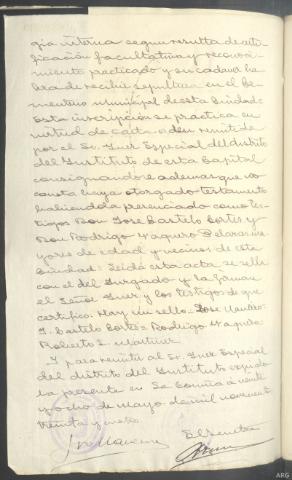 gia interna segun resulta de certi-
ficación facultativa y reconoci-
miento practicado y su cadaver ha-
bra de recibir sepultura en el Ce-
menterio municipal de esta Ciudad:
Esta inscripción se practica en
virtud de carta-orden remitida
por el Sr. Juez Especial del distrito
del Instituto de esta Capital
consignandose ademas que no
consta haya otorgado testamento
habiendola presenciado como tes-
tigos Don Jose Bartelo Cortes y
Don Rodrigo Vaquero ma-
yores de edad y vecinos de esta
Ciudad: Leida esta acta se sella
con el del Juzgado y la firman
el Señor Juez y los testigos de que
certifico. Hay un sello. Jose
J. Bartelo Cortes. Rodrigo Vaquero
Roberto L. Martinez.
Y para remitir al Sr. Juez Especial
del distrito del Instituto expido
la presente en La Coruña a veinte
y ocho de mayo de mil novecientos
treinta y cuatro.
El Secretario
ARG